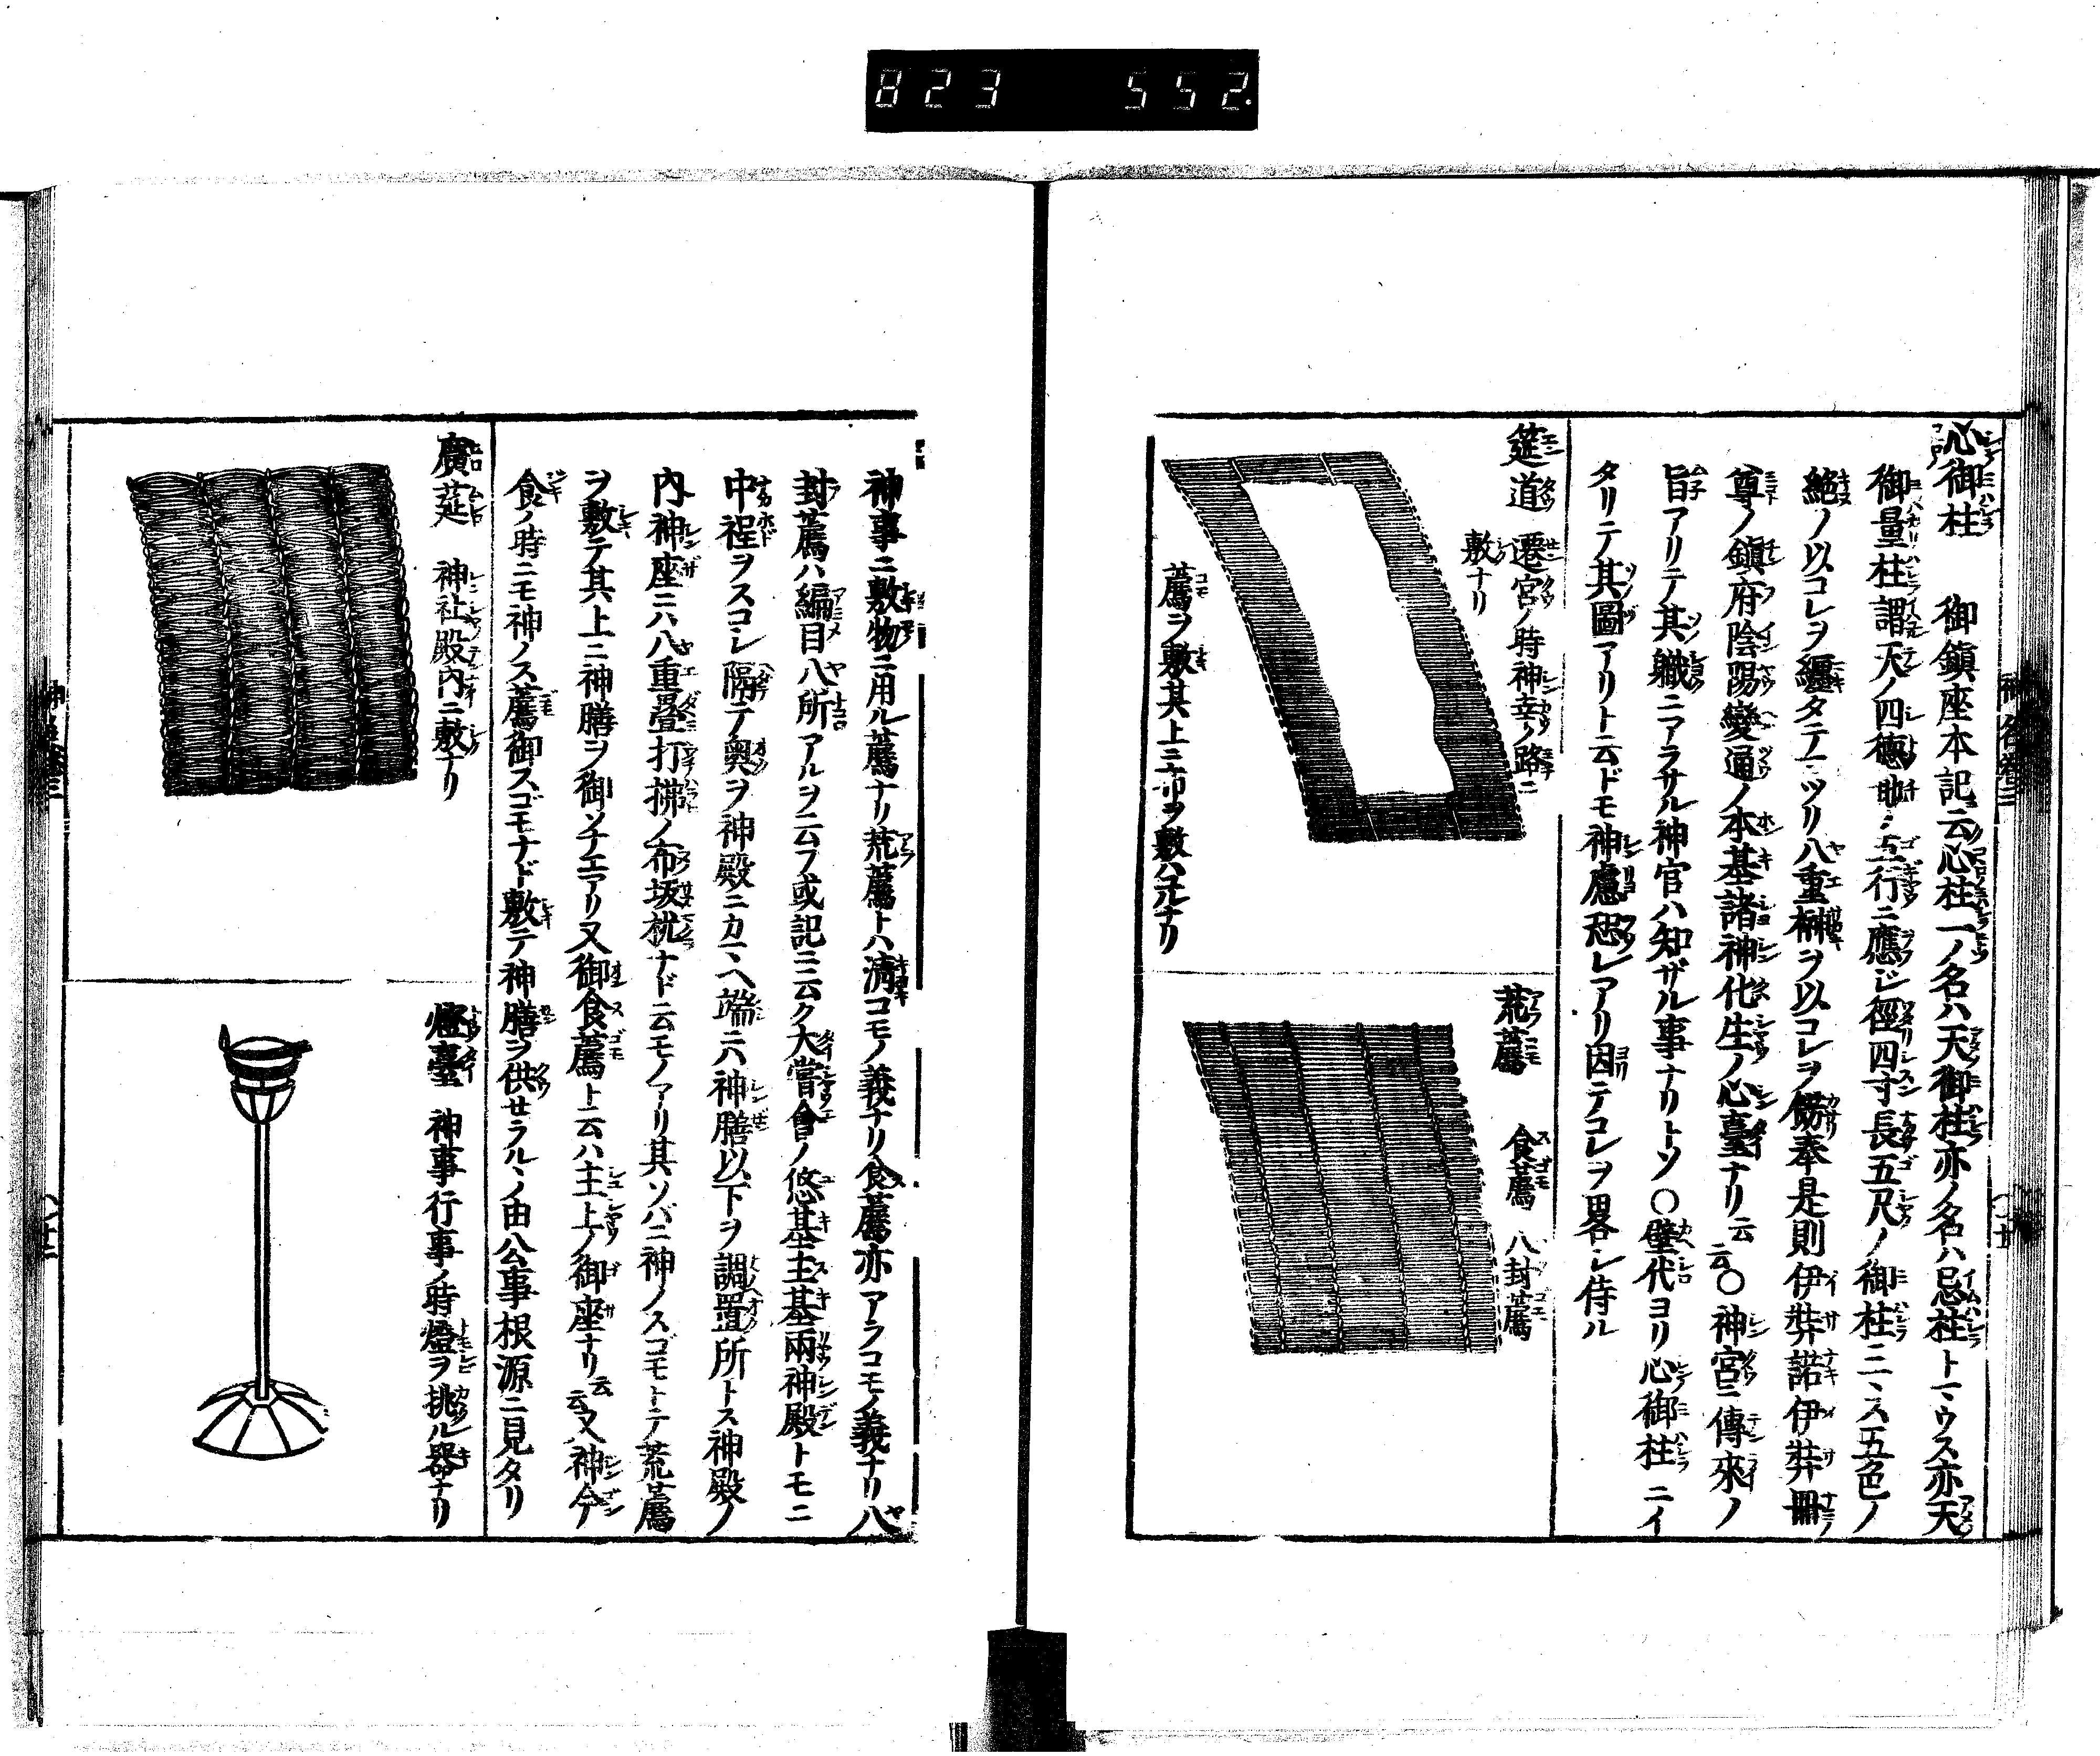 823 552.
心御柱 御鎮座本記云心柱一ノ名ハ天御柱亦ノ名ハ忌柱トマウス亦天
御量柱謂天ノ四德地ノ五行ニ應ジ徑四寸長五尺ノ御柱ニマス五色ノ
絁ノ以コレヲ纏タテマツリ八重榊ヲ以コレヲ餝奉是則伊弉諾伊弉冊
尊ノ鎮府陰陽變通ノ本基諸神化生ノ心臺ナリ云云〇神宮ニ傳來ノ
旨アリテ其職ニアラサル神官ハ知ザル事ナリトソ〇壁代ヨリ心御柱ニイ
タリテ其圖アリト云ドモ神慮恐レアリ因テコレヲ畧シ侍ル
筵道 遷宮ノ時神幸ノ路ニ
敷ナリ
薦ヲ敷其上ニ布ヲ敷
荒薦 食薦 八封薦
神事ニ敷物ニ用ル薦ナリ荒薦トハ淸コモノ義ナリ食薦亦アラコモノ義ナリ八
封薦ハ編目八所アルヲ云フ或記ニ云ク大嘗會ノ悠基主基兩神殿トモニ
中程ヲスコシ隔テ奧ヲ神殿ニカマヘ端ニハ神膳以下ヲ調置所トス神殿ノ
內神座ニハ八重疊打拂ノ布坂枕ナド云モノアリ其ソバニ神ノスゴモトテ荒薦
ヲ敷テ其上ニ神膳ヲ御ソナエアリ又御食薦ト云ハ主上ノ御座ナリ云云又神今
食ノ時ニモ神ノス薦御スゴモナド敷テ神膳ヲ供セラルヽノ由公事根源ニ見タリ
廣莚 神社殿內ニ敷ナリ
燈臺 神事行事ノ時燈ヲ挑ル器ナリ